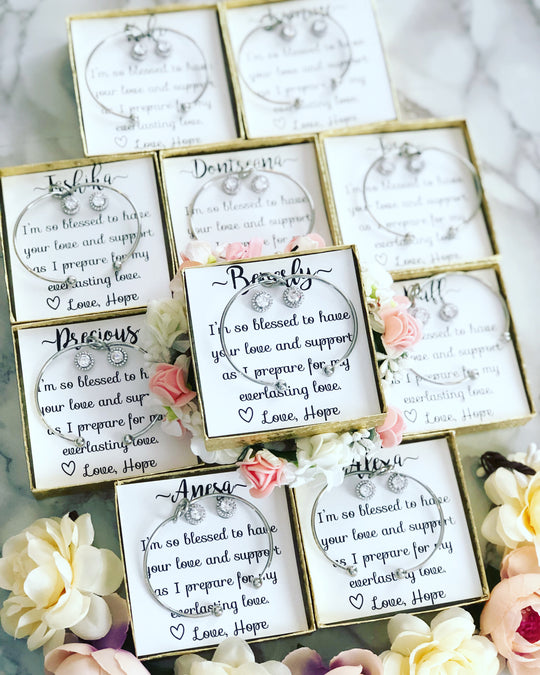 I'm so blessed to have
your love and support
as I prepare for my
everlasting love.
♡ Love, Hope
your love and support
as I prepare for my
everlasting love.
♡ Love, Hope
~Teshika~
I'm so blessed to have
your love and support
as I prepare for my
everlasting love.
♡ Love, Hope
~Dontseena~
I'm so blessed to have
your love and support
as I prepare for my
I'm so blessed to have
your love and support
as I prepare for my
everlasting love.
~Beverly~
I'm so blessed to have
your love and support
as I prepare for my
everlasting love.
♡ Love, Hope
~Precious~
I'm so blessed to h
your love and sup
as I prepare for
everlasting
♡ Love, Hope
I'm so blessed to have
love and support
prepare for my
everlasting love.
Love, Hope
~Anesa~
I'm so blessed to have
your love and support
as I prepare for my
everlasting love.
♡ Love, Hope
~Alexa~
I'm so blessed to have
your love and support
as I prepare for my
everlasting love.
♡ Love, Hope